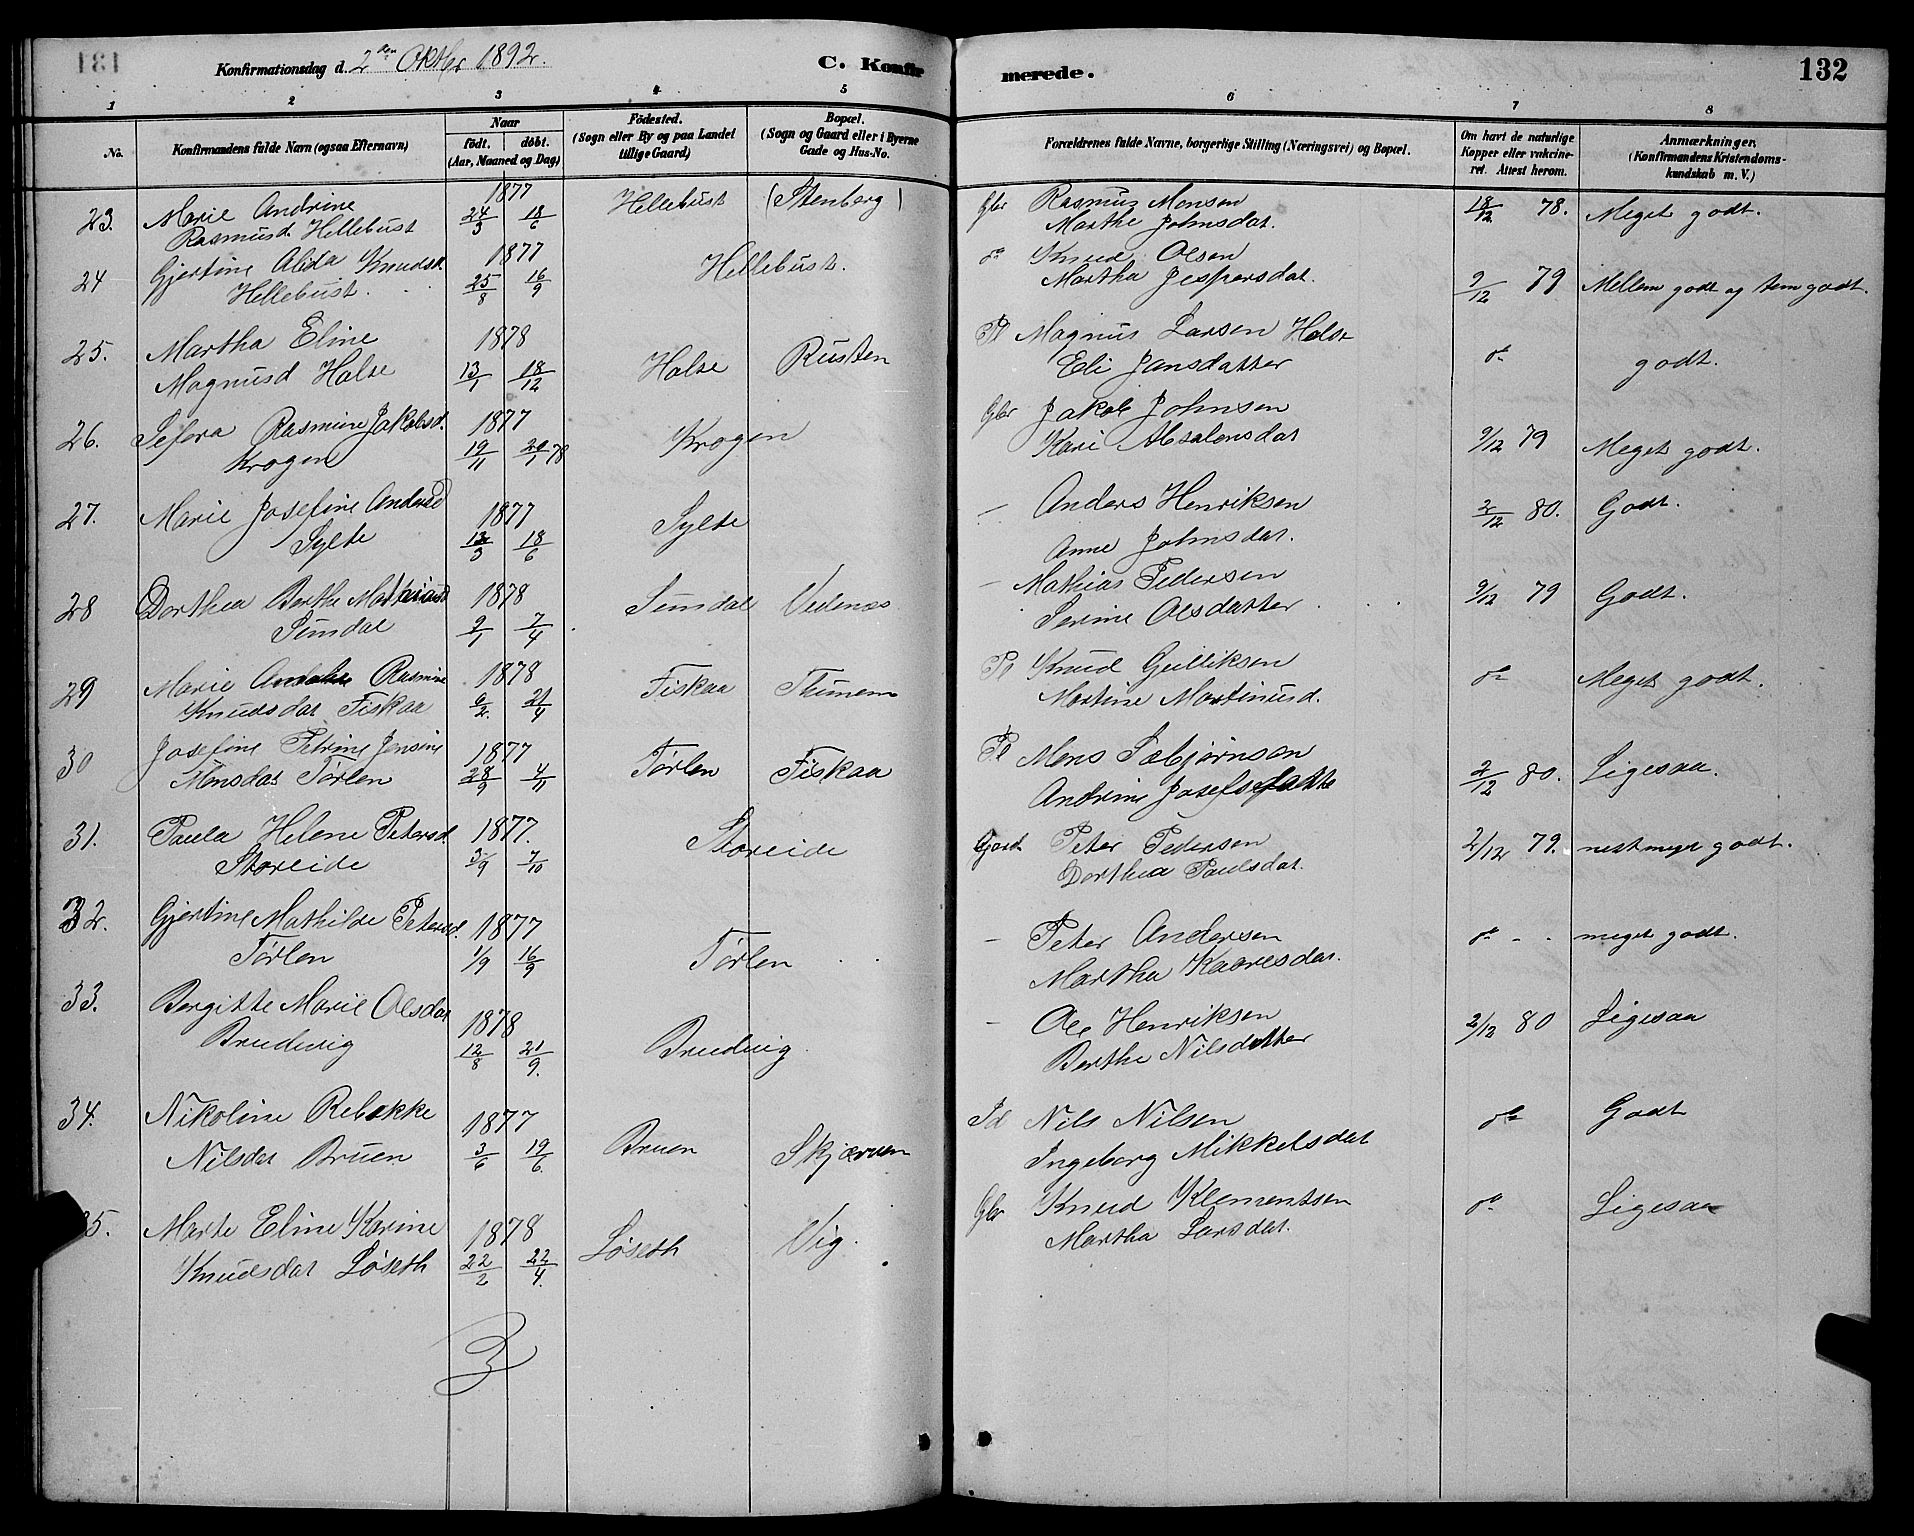 Konfirmationsdag d. 2den Oktbr 1892.
C. Konfir
merede.
132
1 2 3 4 5 6 7 8
No.
Konfirmandens fulde Navn (ogsaa Efternavn)
Naar
födt. döbt.
(Aar, Maaned og Dag)
Födested.
(Sogn eller By og paa Landet
tillige Gaard)
Bopæl.
(Sogn og Gaard eller i Byerne
Gade og Hus-No.
Forældrenes fulde Navne, borgerlige Stilling (Næringsvei) og Bopæl.
Om havt de naturlige
Kopper eller vakcine-
ret. Attest herom.
Anmærkninger.
(Konfirmandens Kristendoms-
kundskab m. V.)
23. Marie Andrine 1877 Hellebust (Stenberg) Gbr Rasmus Monsen 18/12 78. Meget godt.
Rasmusd. Hellebust 24/5 18/6 Marthe Johnsdat.
24 Gjertine Alida Knudsd. 1877 Hellebust. do Knud Olsen
Hellebust. 25/8 16/9 Martha Jespersdat. 9/12 79 Mellem godt og tem godt.
25. Martha Eline 1878 Pl Magnus Larsen Halse
Magnusd Halse 13/1 18/12 Halse Rusten Eli Jansdatter do godt.
26. Sefera Rasmine Jakobsd. 1877 Krogen Gbr Jakob Johnsen
Krogen 19/11 20/1 78 Kari Absalonsdat 9/12 79 Meget godt.
27. Marie Josefine Andersd 1877 Sylte - Anders Henriksen 2/12 80. Godt.
Sylte 13/5 18/6 Anne Johnsdat.
28 Dorthea Berthe Mathiasd 1878 Sundal Vedenæs - Mathias Pedersen 9/12 79 Godt.
Sundal 9/1 7/4 Serine Olsdatter
29 Marie Rasmine 1878 Fiskaa Thunem Pl Knud Gulliksen do Meget godt.
Knudsdat Fiskaa 6/2. 21/4 Martine Martinusd.
30 Josefine Petrine Jensine 1877 Tørlen Fiskaa Pl Mons Sæbjørnsen
Monsdat Tørlen 28/9 4/11 Andrine Josefsdatte 2/12 80. Ligesaa.
31. Paula Helene Petersd. 1877. Storeide Gjard Peter Pedersen 2/12 79. nest meget godt.
Storeide 3/9 7/10 Dorthea Paulsdat.
32. Gjertine Mathilde Petersd. 1877 - Peter Andersen do - - meget godt.
Tørlen 1/9 16/9 Tørlen Martha Kaaresdat.
33. Bergitte Marie Olsdat 1878 - Ole Henriksen 2/12 80 Ligesaa
Brudevig 12/8 21/9. Brudevig. Berthe Nilsdatter
34. Nikoline Rebekke 1877 Id Nils Nilsen do Godt
Nilsdat Bruen 3/6 19/6. Bruen Skjærven Ingeborg Mikkelsdat
35. Marte Eline Karine 1878 Løseth Vig. Gbr Knud Klementsen do Ligesaa
Knudsdat Løseth 22/2 22/4. Martha Larsdat.